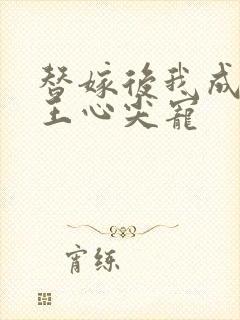 替嫁後我成
王心尖寵
宵練